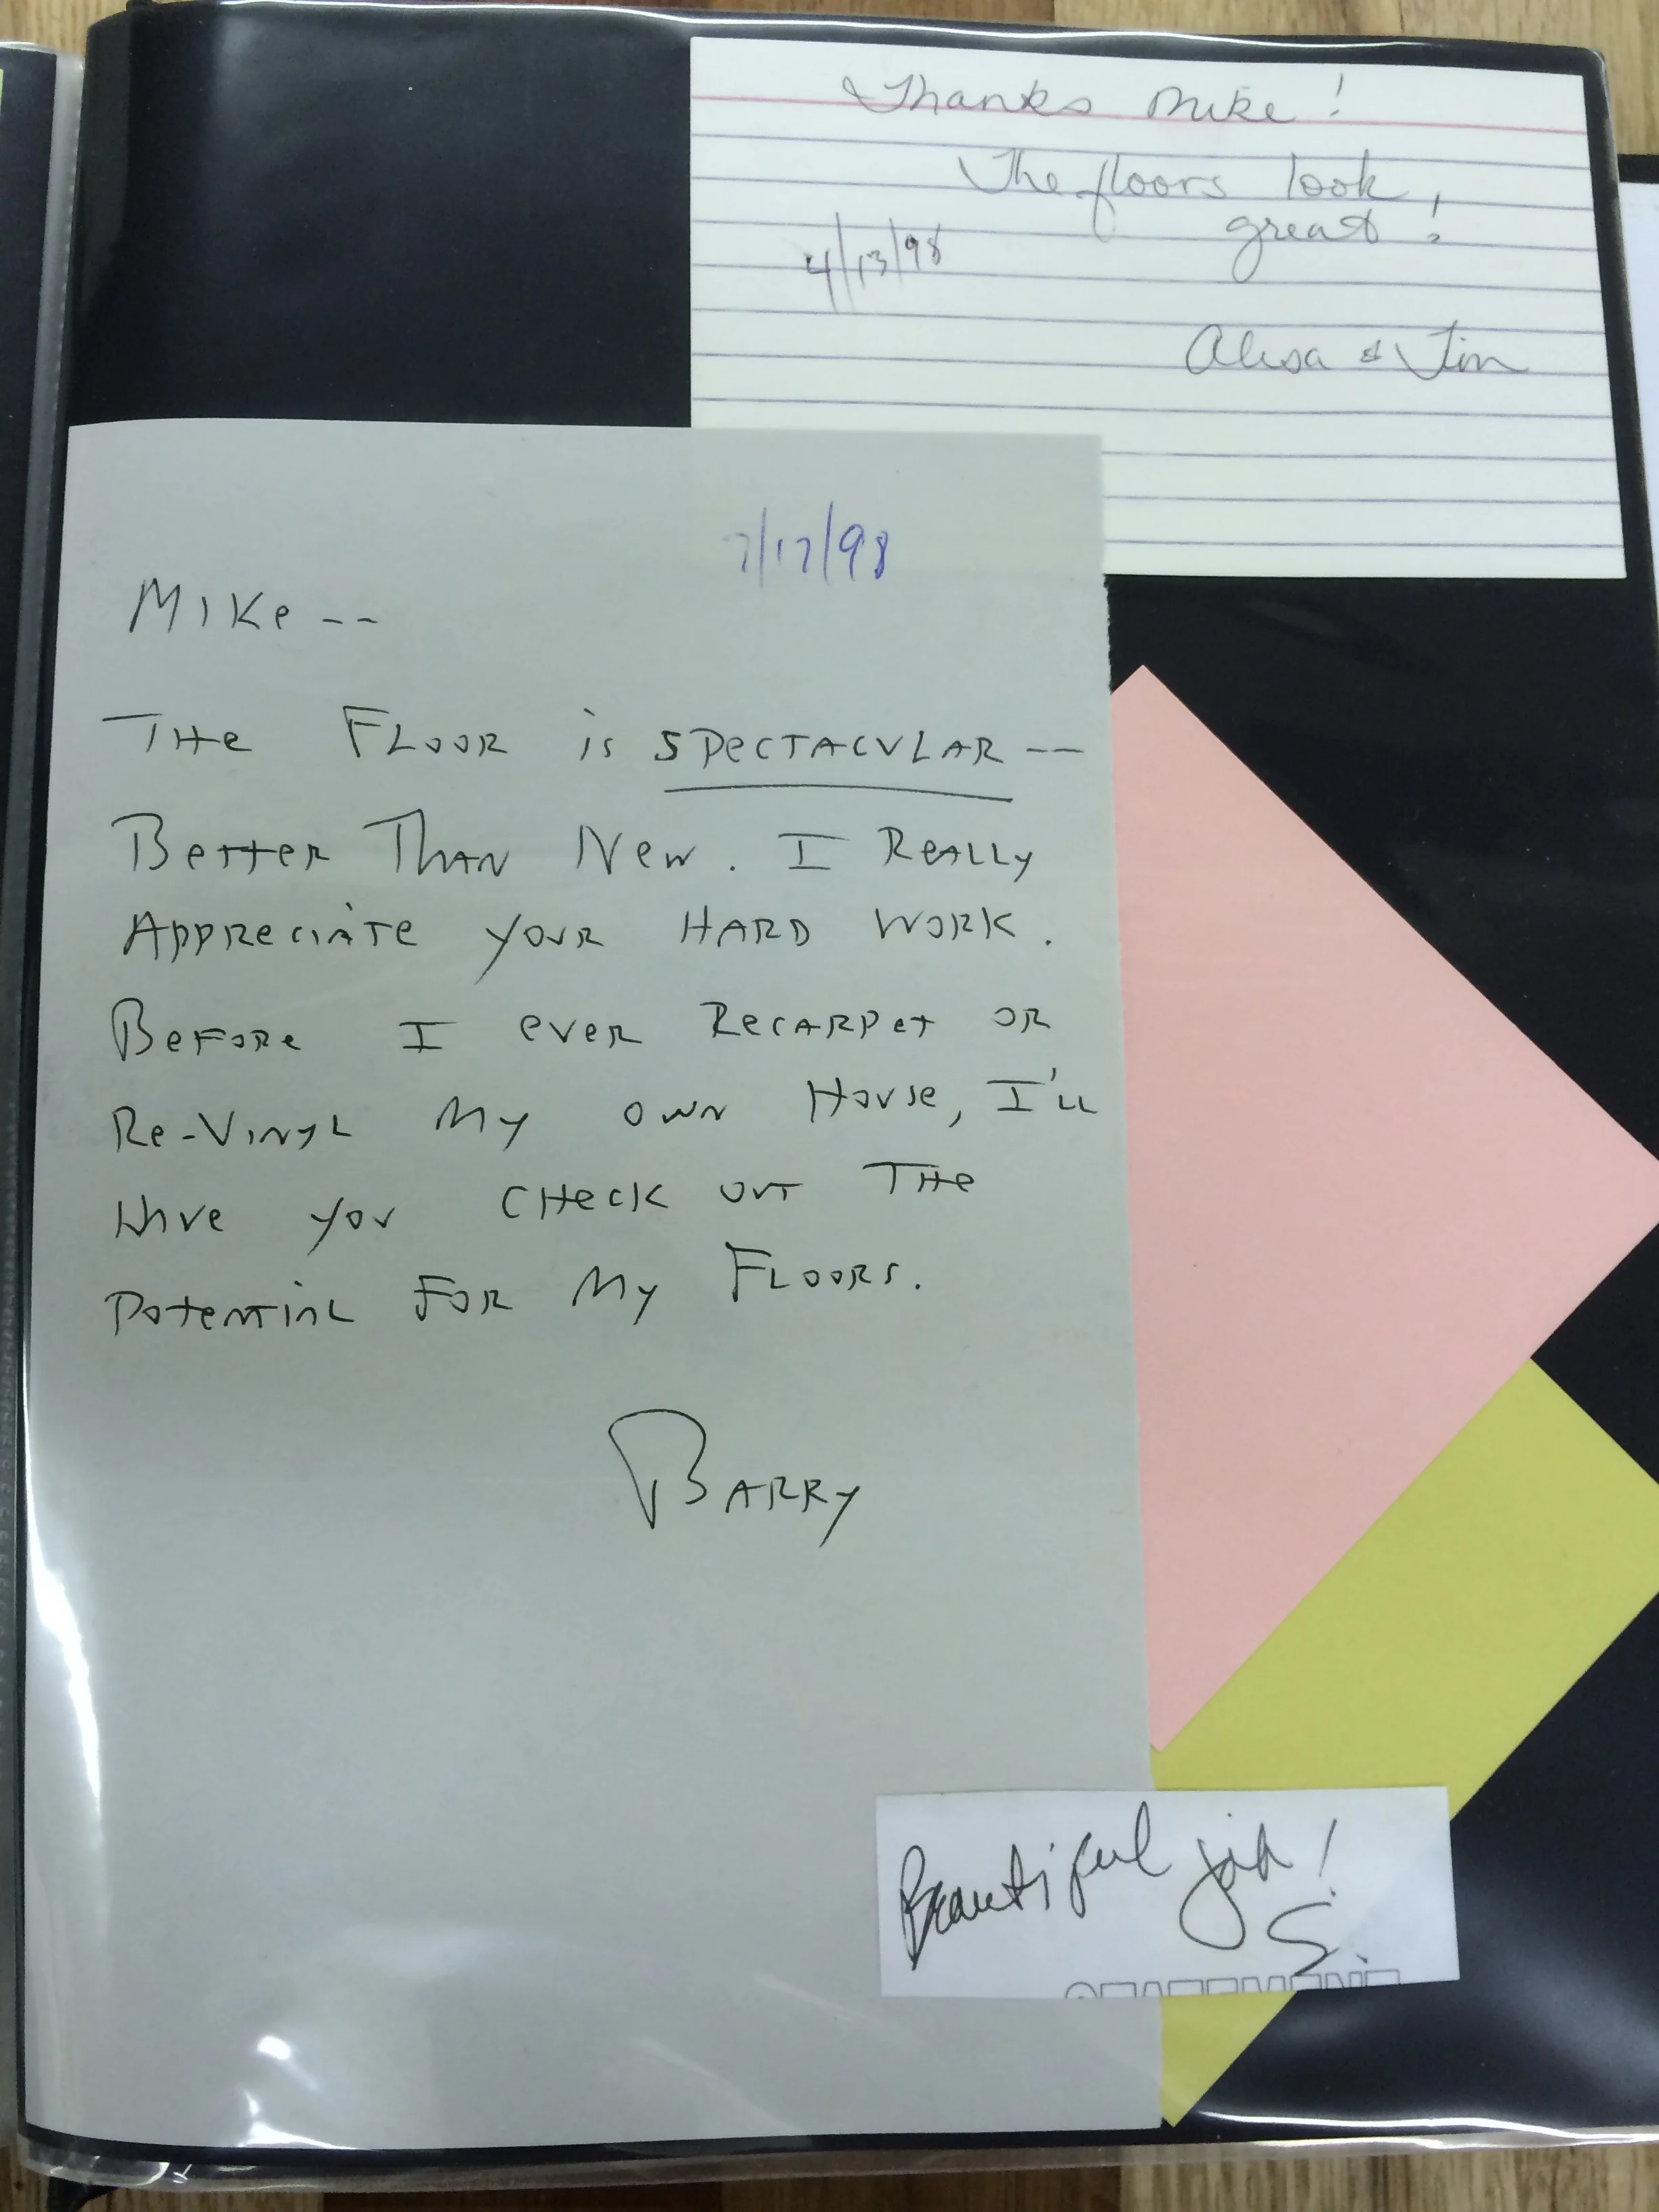 Thanks Mike!
The floors look,
great!
4/13/98
Alisa & Jim
7/17/98
Mike--
The Floor is SPECTACULAR--
Better Than New. I Really
Appreciate your HARD WORK.
Before I ever Recarpet or
Re-Vinyl My own House, I'll
Have you check out The
Potential For My Floors.
Barry
Beautiful job!
S.